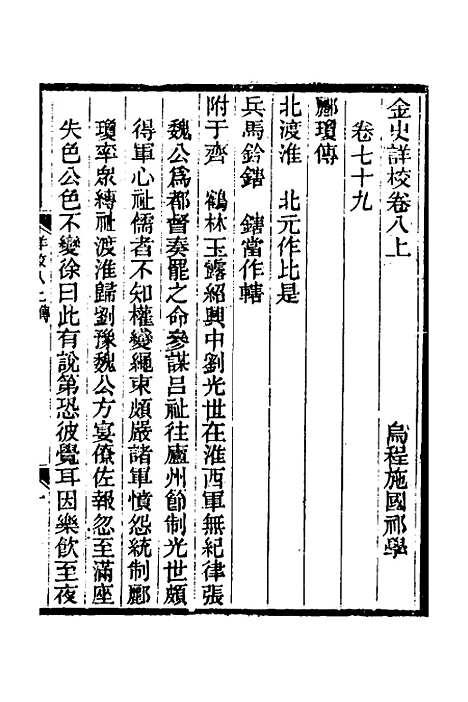 金史詳校卷八上　烏程施國祁學
卷七十九
酈瓊傳
北渡淮　北元作比是
兵馬鈐鎋　鎋當作轄
附于齊　鶴林玉露紹興中劉光世在淮西軍無紀律張
魏公爲都督奏罷之命參謀呂祉往廬州節制光世頗
得軍心祉儒者不知權變繩束頗嚴諸軍憤怨統制酈
瓊率衆縛祉渡淮歸劉豫魏公方宴僚佐報忽至滿座
失色公色不變徐曰此有說第恐彼覺耳因樂飲至夜